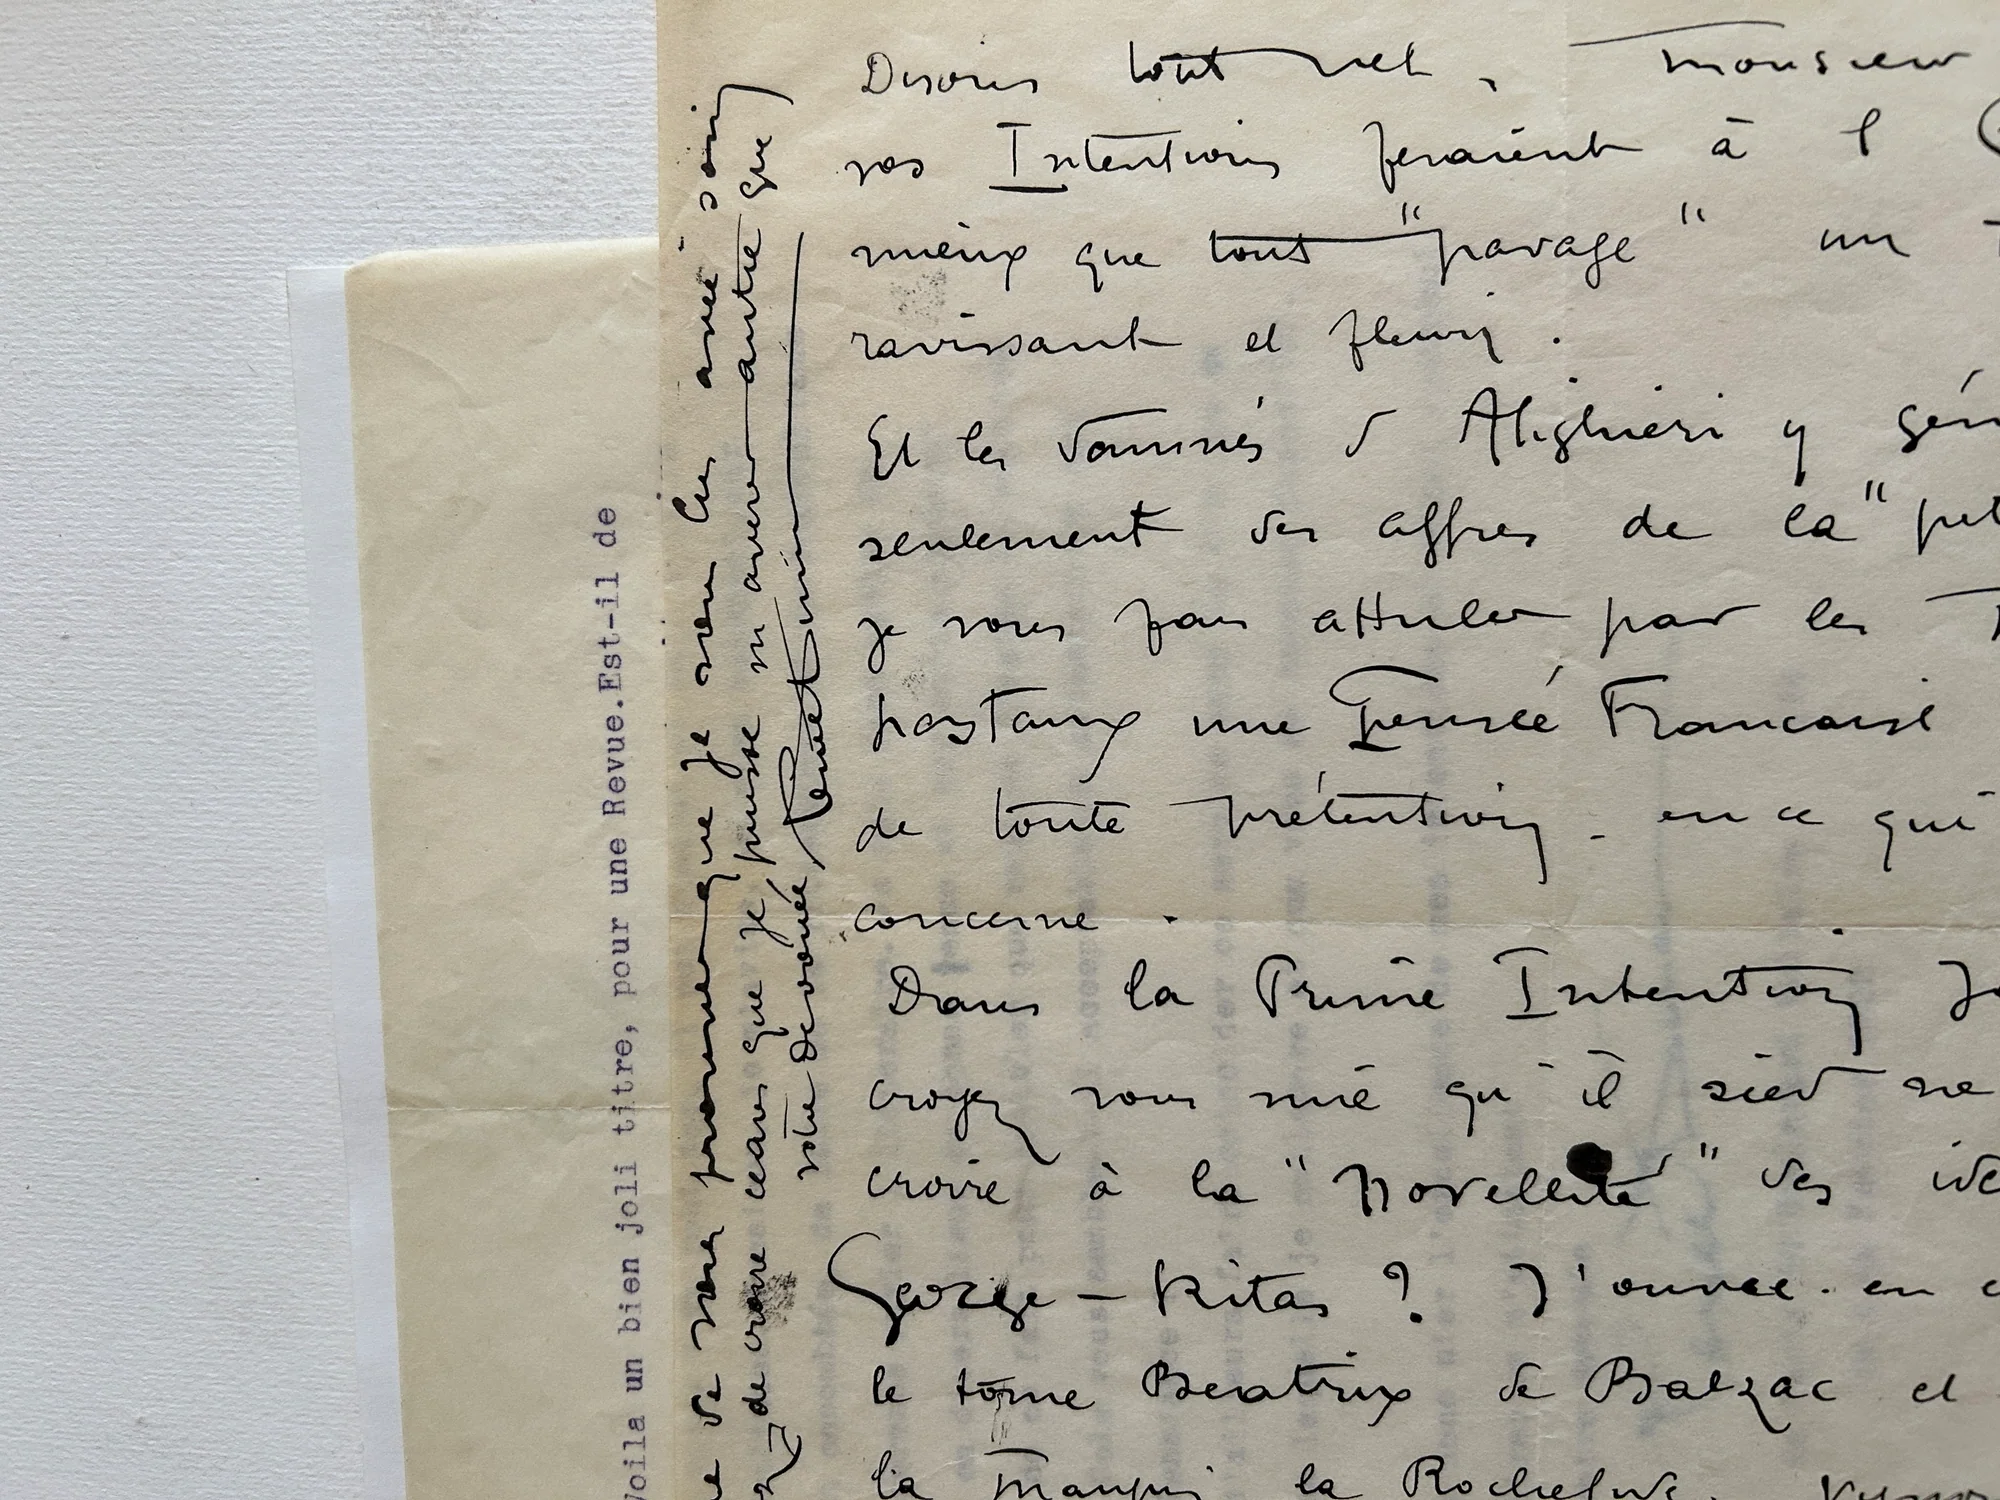 Disons tout net, monsieur
vos Intentions feraient à l
mieux que tout "pavage" un
ravissant et fleuri.
Et les damnés d Alighieri y gém
seulement des affres de la "pet
je vous pour attuler par les
postaux une Pensée Francaise
de toute prétention - en ce qui
concerne.
Dans la Prime Intention
croyez vous mie qu'il sied ne
croire à la "Novellité" des idé
George-Ritas? J'ouvre. en
le tome Beatrix de Balzac et
la la Rochef
de vous que je vous lis avec soin
de croire ceans que je puisse m averer autre que
votre devouée
Voila un bien joli titre, pour une Revue.Est-il de